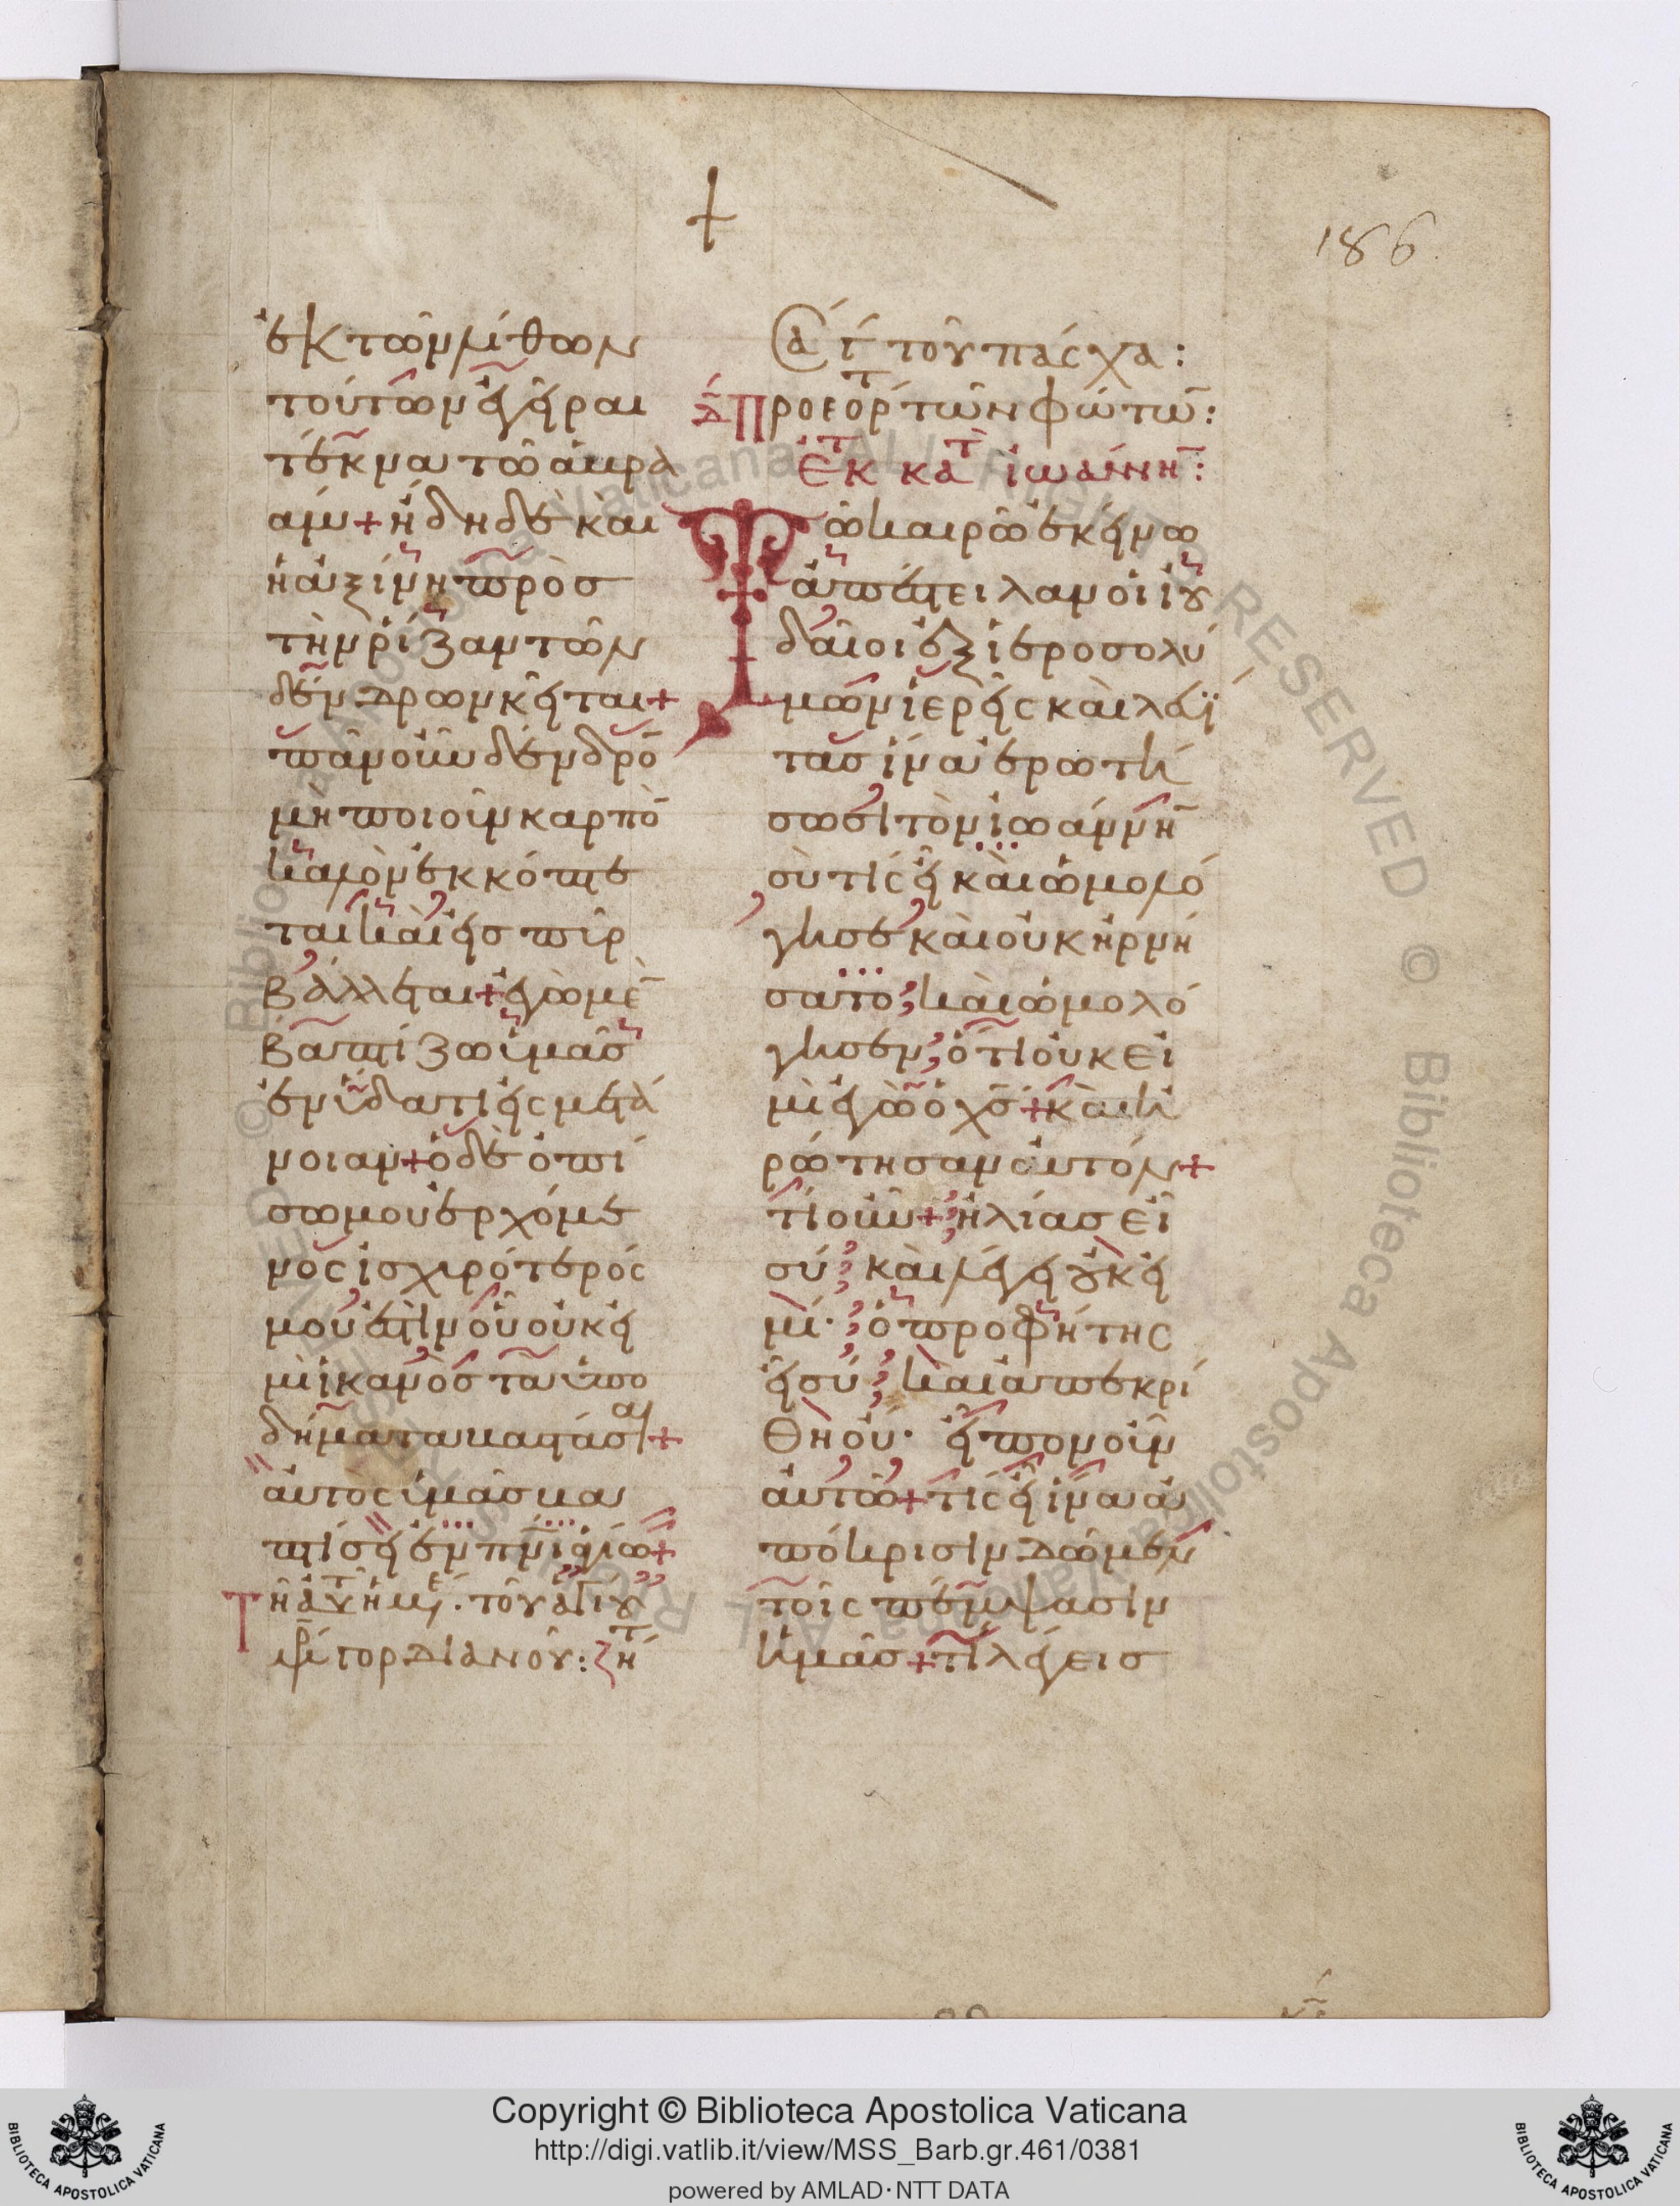 186
ἐκ τῶν λίθων
τούτων ἐγεῖραι
τέκνα τῶ ἁβρα
άμ + ἤδη δὲ καὶ
ἡ ἀξίνη πρὸσ
τὴν ρίζαν τῶν
δένδρων κεῖται +
πᾶν οὖν δένδρο̄
μὴ ποιοῦν καρπὸ̄
καλὸν ἐκκόπτε
ται καὶ εἰσ πῦρ
βάλλεται + ἐγὼ μὲ̄
βαπτίζω ὑμᾶσ
ἐν ὕδατι εἰς μετά
νοιαν + ὁ δὲ ὀπί
σω μου ἐρχόμε
νος ἰσχυρότερός
μου ἐστὶν οὗ οὐκ εἰ
μὶ ἱκανὸσ τὰ ὑπο
δήματα βαστάσαι +
αὐτὸς ὑμᾶσ βα
πτίσει ἐν πνῑ ἁγίω +
Τῆ αὐτ ἡμε. τοῦ ἁγίου
μρ γορδιανοῦ: ζητ
ἁγ τοῦ πάσχα:
Προεόρτ τῶν φώτω̄:
Ἐκ κατ ἰωάννη̄:
Τῶ καιρῶ ἐκείνω
ἀπέστειλαν οἱ ἰου
δαῖοι ἐξ ἱεροσολύ
μων ἱερεῖς καὶ λευΐ
τασ ἵνα ἐρωτή
σωσι τὸν ἰωάννη̄
σὺ τίς εἶ καὶ ὡμολό
γησε καὶ οὐκ ἠρνή
σατο; καὶ ὡμολό
γησεν; ὅτι οὐκ εἰ
μὶ ἐγὼ ὁ χς̄ + καὶ ἠ
ρώτησαν αὐτόν +
τί οὖν + ἠλίασ εἶ
σύ; καὶ λέγει οὐκ εἰ
μί· ὁ προφήτης
εἶ σύ; καὶ ἀπεκρί
θη οὔ· εἶπον οὖν
αὐτῶ + τίς εἶ ἵνα ἀ
πόκρισιν δῶμεν
τοῖς πέμψασιν
ἡμᾶσ + τί λέγεισ
Copyright © Biblioteca Apostolica Vaticana
http://digi.vatlib.it/view/MSS_Barb.gr.461/0381
powered by AMLAD·NTT DATA